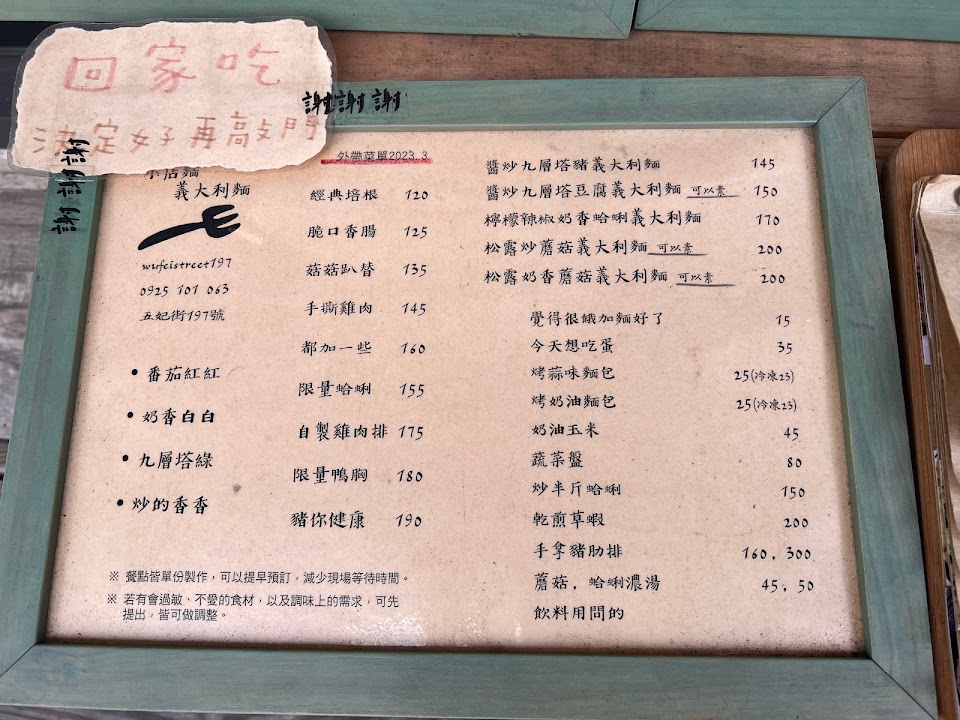 回家吃
決定好再敲門
謝謝謝
謝謝謝
外帶菜單2023.3
小店麵
義大利麵
wufeistreet197
0925 101 063
五妃街197號
• 番茄紅紅
• 奶香白白
• 九層塔綠
• 炒的香香
經典培根 120
脆口香腸 125
菇菇趴替 135
手撕雞肉 145
都加一些 160
限量蛤蜊 155
自製雞肉排 175
限量鴨胸 180
豬你健康 190
※ 餐點皆單份製作，可以提早預訂，減少現場等待時間。
※ 若有會過敏、不愛的食材，以及調味上的需求，可先
提出，皆可做調整。
醬炒九層塔豬義大利麵 145
醬炒九層塔豆腐義大利麵 可以素 150
檸檬辣椒奶香蛤蜊義大利麵 170
松露炒蘑菇義大利麵 可以素 200
松露奶香蘑菇義大利麵 可以素 200
覺得很餓加麵好了 15
今天想吃蛋 35
烤蒜味麵包 25(冷凍23)
烤奶油麵包 25(冷凍23)
奶油玉米 45
蔬菜盤 80
炒半斤蛤蜊 150
乾煎草蝦 200
手拿豬肋排 160, 300
蘑菇, 蛤蜊濃湯 45, 50
飲料用問的